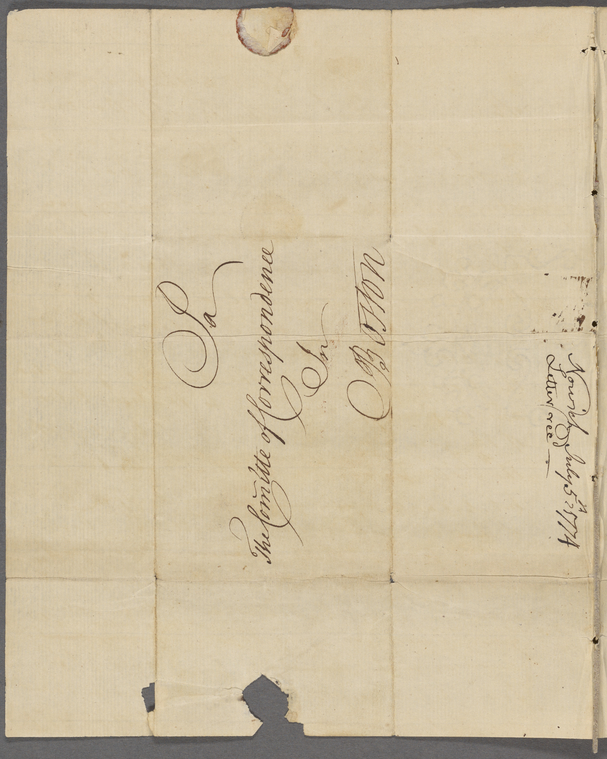 To
The Com̃itte of Correspondence
In
Boston
Norwich July 5th 1774
Letter rec'd